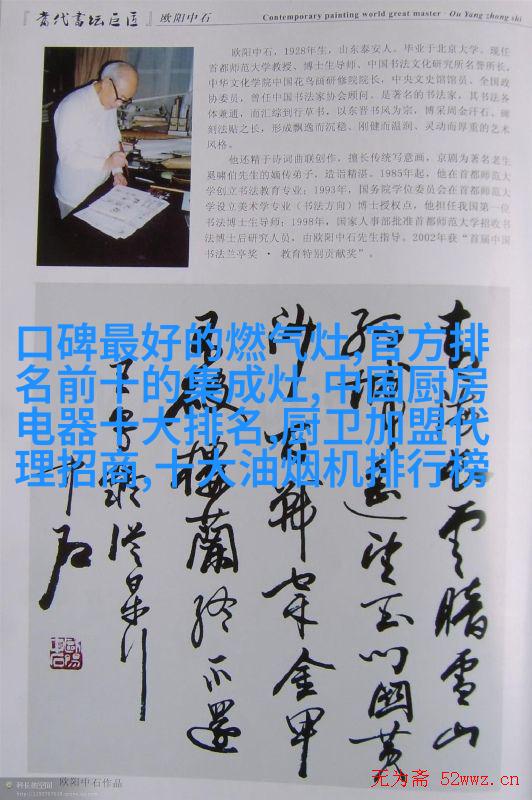 『当代書坛巨匠』欧阳中石
Contemporary painting world great master · Ou Yang zhong shi
欧阳中石，1928年生，山东泰安人。毕业于北京大学。现任
首都师范大学教授、博士生导师、中国书法文化研究所名誉所长，
中华文化学院中国花鸟画研修院院长，中央文史馆馆员、全国政
协委员，曾任中国书法家协会顾问。是著名的书法家，其书法各
体兼通，而汇综到行草书，以东晋书风为宗，博采周金汗石、碑
刻法贴之长，形成飘逸而沉稳、刚健而温润、灵动而厚重的艺术
风格。
他还精于诗词曲联创作，擅长传统写意画，京剧为著名老生
奚啸伯先生的嫡传弟子，造诣精湛。1985年起，他在首都师范大
学创立书法教育专业；1993年，国务院学位委员会在首都师范大
学设立美术学专业（书法方向）博士授权点，他担任我国第一位
书法博士生导师；1998年，国家人事部批准首都师范大学招收书
法博士后研究人员，由欧阳中石先生指导。2002年获“首届中国
书法兰亭奖 · 教育特别贡献奖”。
口碑最好的燃气灶,官方排
名前十的集成灶,中国厨房
电器十大排名,厨卫加盟代
理招商,十大油烟机排行榜
青海长雲暗雪山
孤城遥望玉门関黄
沙百戦穿金甲
不破楼蘭终不還
中石
欧阳中石作品
无为斋 52wwz.cn